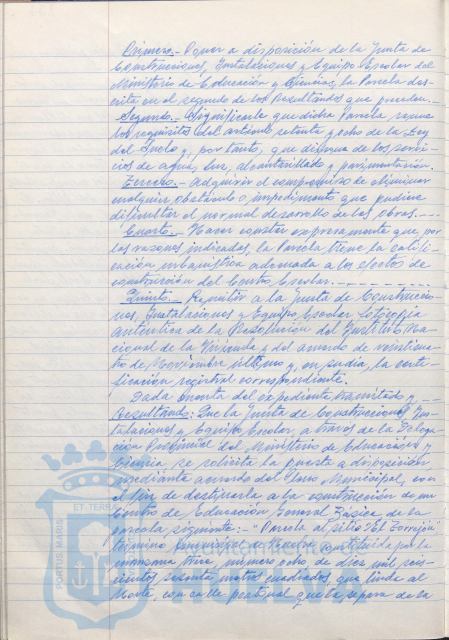 Primero.- Poner a disposición de la Junta de
Construcciones, Instalaciones y Equipo Escolar del
Ministerio de Educación y Ciencia, la Parcela des-
crita en el segundo de los Resultandos que preceden.
Segundo.- Significarle que dicha Parcela reune
los requisitos del artículo setenta y ocho de la Ley
del Suelo y, por tanto, que dispone de los servi-
cios de agua, luz, alcantarillado y pavimentación.
Tercero.- Adquirir el compromiso de eliminar
cualquier obstáculo o impedimento que pudiera
dificultar el normal desarrollo de las obras.---
Cuarto.- Hacer constar expresamente que, por
las razones indicadas, la Parcela tiene la califi-
cación urbanística adecuada a los efectos de
construcción del Centro Escolar.---------
Quinto.- Remitir a la Junta de Construccio-
nes, Instalaciones y Equipo Escolar fotocopia
auténtica de la Resolución del Instituto Na-
cional de la Vivienda y del acuerdo de veinticua-
tro de Noviembre último y, en su día, la certi-
ficación registral correspondiente.
Dada cuenta del expediente tramitado y ---
Resultando: Que la Junta de Construcciones, Ins-
talaciones y Equipo Escolar, a través de la Delega-
ción Provincial del Ministerio de Educación y
Ciencia se solicita la puesta a disposición
mediante acuerdo del Pleno Municipal, con
el fin de destinarla a la construcción de un
Centro de Educación General Básica de la
parcela siguiente:- "Parcela al sitio "El Torrejón"
término municipal de Huelva constituida por la
manzana trece, número ocho, de diez mil seis-
cientos setenta metros cuadrados, que linda al
Norte, con calle peatonal que la separa de la
PORTUS MARIS
ET TERRAE